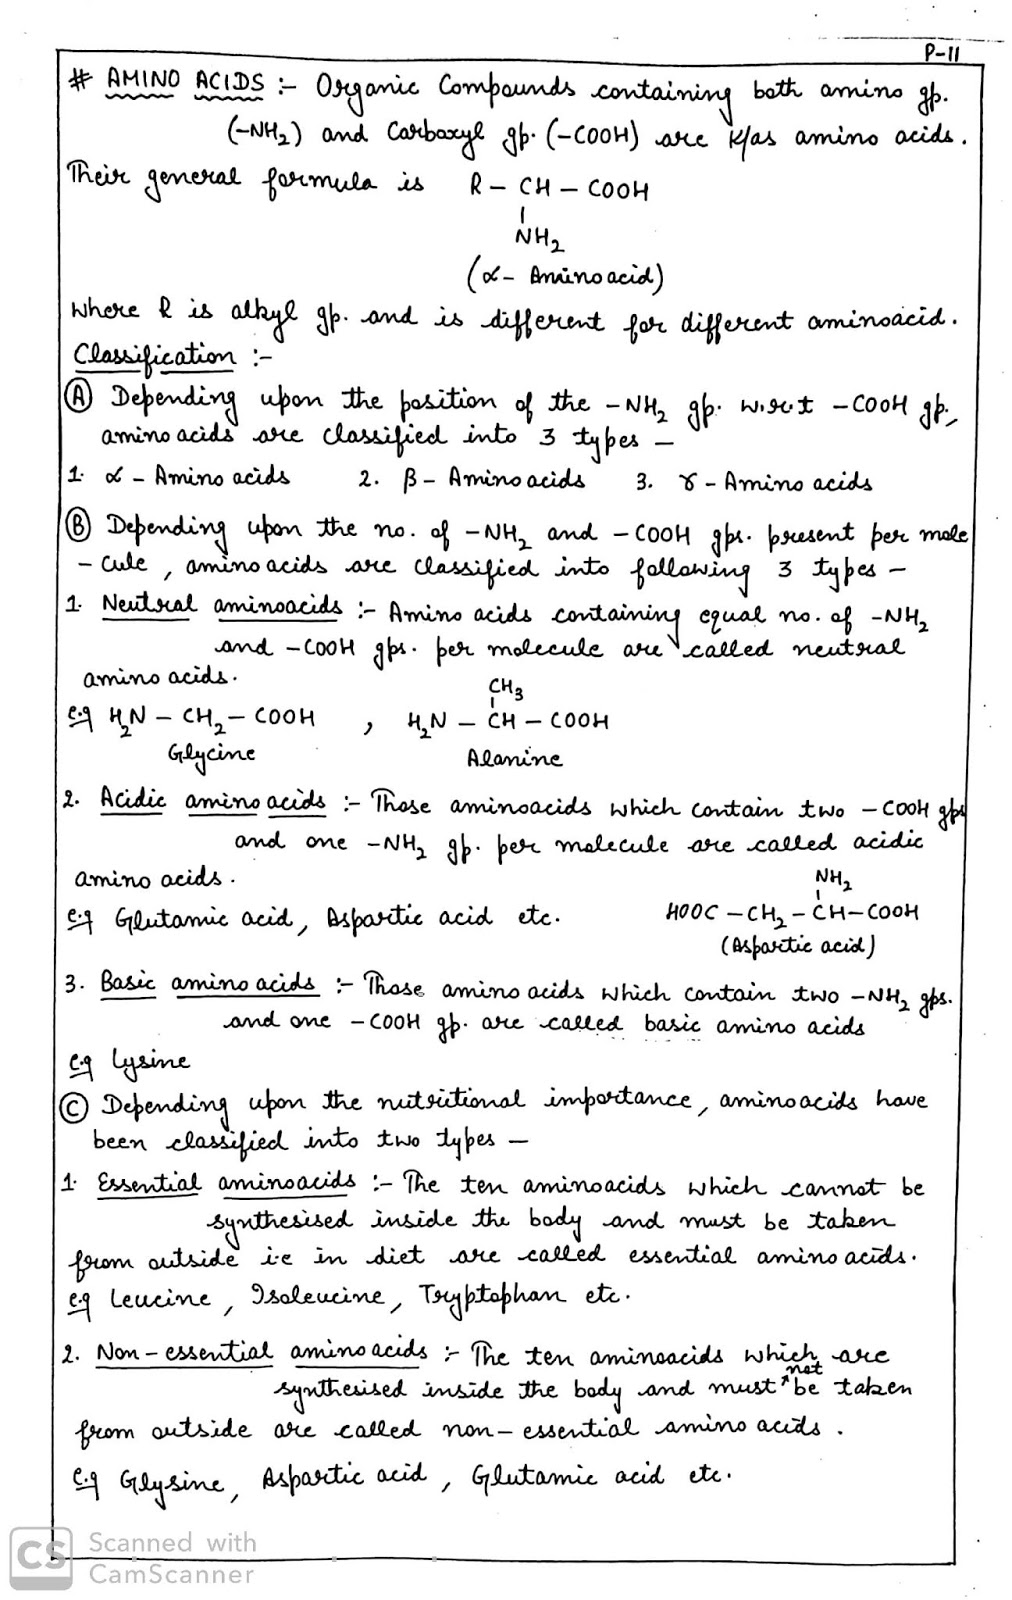 P-11
# AMINO ACIDS :- Organic Compounds containing both amino gp.
(-NH₂) and Carboxyl gp. (-COOH) are k/as amino acids.
Their general formula is R - CH - COOH
NH₂
(α- Aminoacid)
where R is alkyl gp. and is different for different aminoacid.
Classification :-
(A) Depending upon the position of the -NH₂ gp. w.r.t -COOH gp.,
amino acids are classified into 3 types -
1. α - Amino acids 2. β - Amino acids 3. γ - Amino acids
(B) Depending upon the no. of -NH₂ and -COOH gps. present per mole
- cule, amino acids are classified into following 3 types -
1. Neutral aminoacids :- Amino acids containing equal no. of -NH₂
and -COOH gps. per molecule are called neutral
amino acids.
CH₃
e.g H₂N - CH₂ - COOH , H₂N - CH - COOH
Glycine Alanine
2. Acidic amino acids :- Those aminoacids which contain two -COOH gps
and one -NH₂ gp. per molecule are called acidic
amino acids.
NH₂
e.g Glutamic acid, Aspartic acid etc. HOOC - CH₂ - CH-COOH
(Aspartic acid)
3. Basic amino acids :- Those amino acids which contain two -NH₂ gps.
and one -COOH gp. are called basic amino acids
e.g lysine
(C) Depending upon the nutritional importance, amino acids have
been classified into two types -
1. Essential aminoacids :- The ten aminoacids which cannot be
synthesised inside the body and must be taken
from outside i.e in diet are called essential amino acids.
e.g Leucine, Isoleucine, Tryptophan etc.
2. Non-essential amino acids :- The ten aminoacids which are
synthesised inside the body and must not be taken
from outside are called non-essential amino acids.
e.g Glysine, Aspartic acid, Glutamic acid etc.
CS Scanned with
CamScanner